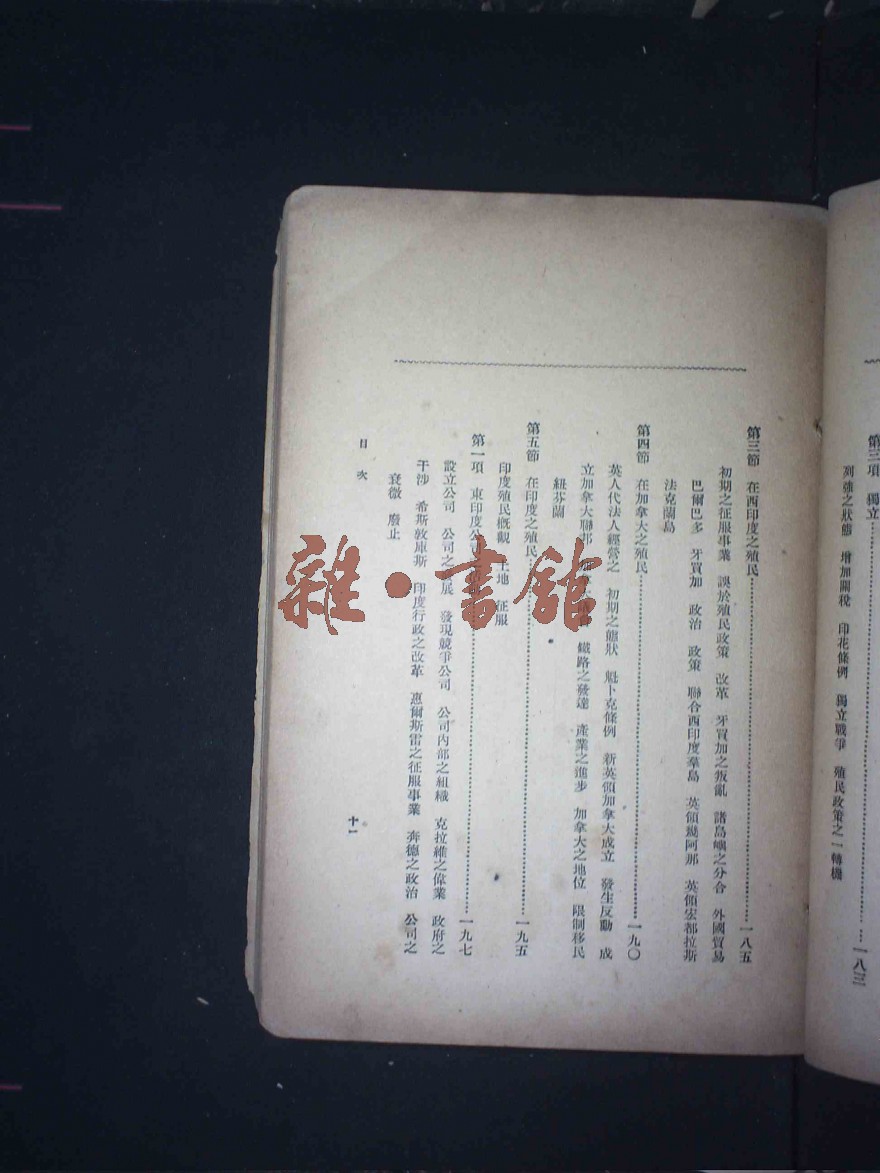 第三項　獨立……一八三
列強之狀態　增加關稅　印花條例　獨立戰爭　殖民政策之一轉機
第三節　在西印度之殖民……一八五
初期之征服事業　誤於殖民政策　改革　牙買加之叛亂　諸島嶼之分合　外國貿易
巴爾巴多　牙買加　政治　政策　聯合西印度羣島　英領幾阿那　英領宏都拉斯
法克蘭島
第四節　在加拿大之殖民……一九〇
英人代法人經營之　初期之態狀　魁卜克條例　新英領加拿大成立　發生反動　成
立加拿大聯邦　加拿　鐵路之發達　產業之進步　加拿大之地位　限制移民
紐芬蘭
第五節　在印度之殖民……一九五
印度殖民概觀　土地　征服
第一項　東印度公司……一九七
設立公司　公司之發展　發現競爭公司　公司內部之組織　克拉維之偉業　政府之
干涉　希斯敦庫斯　印度行政之改革　惠爾斯雷之征服事業　奔德之政治　公司之
衰微　廢止
目次　十一
雜·書館